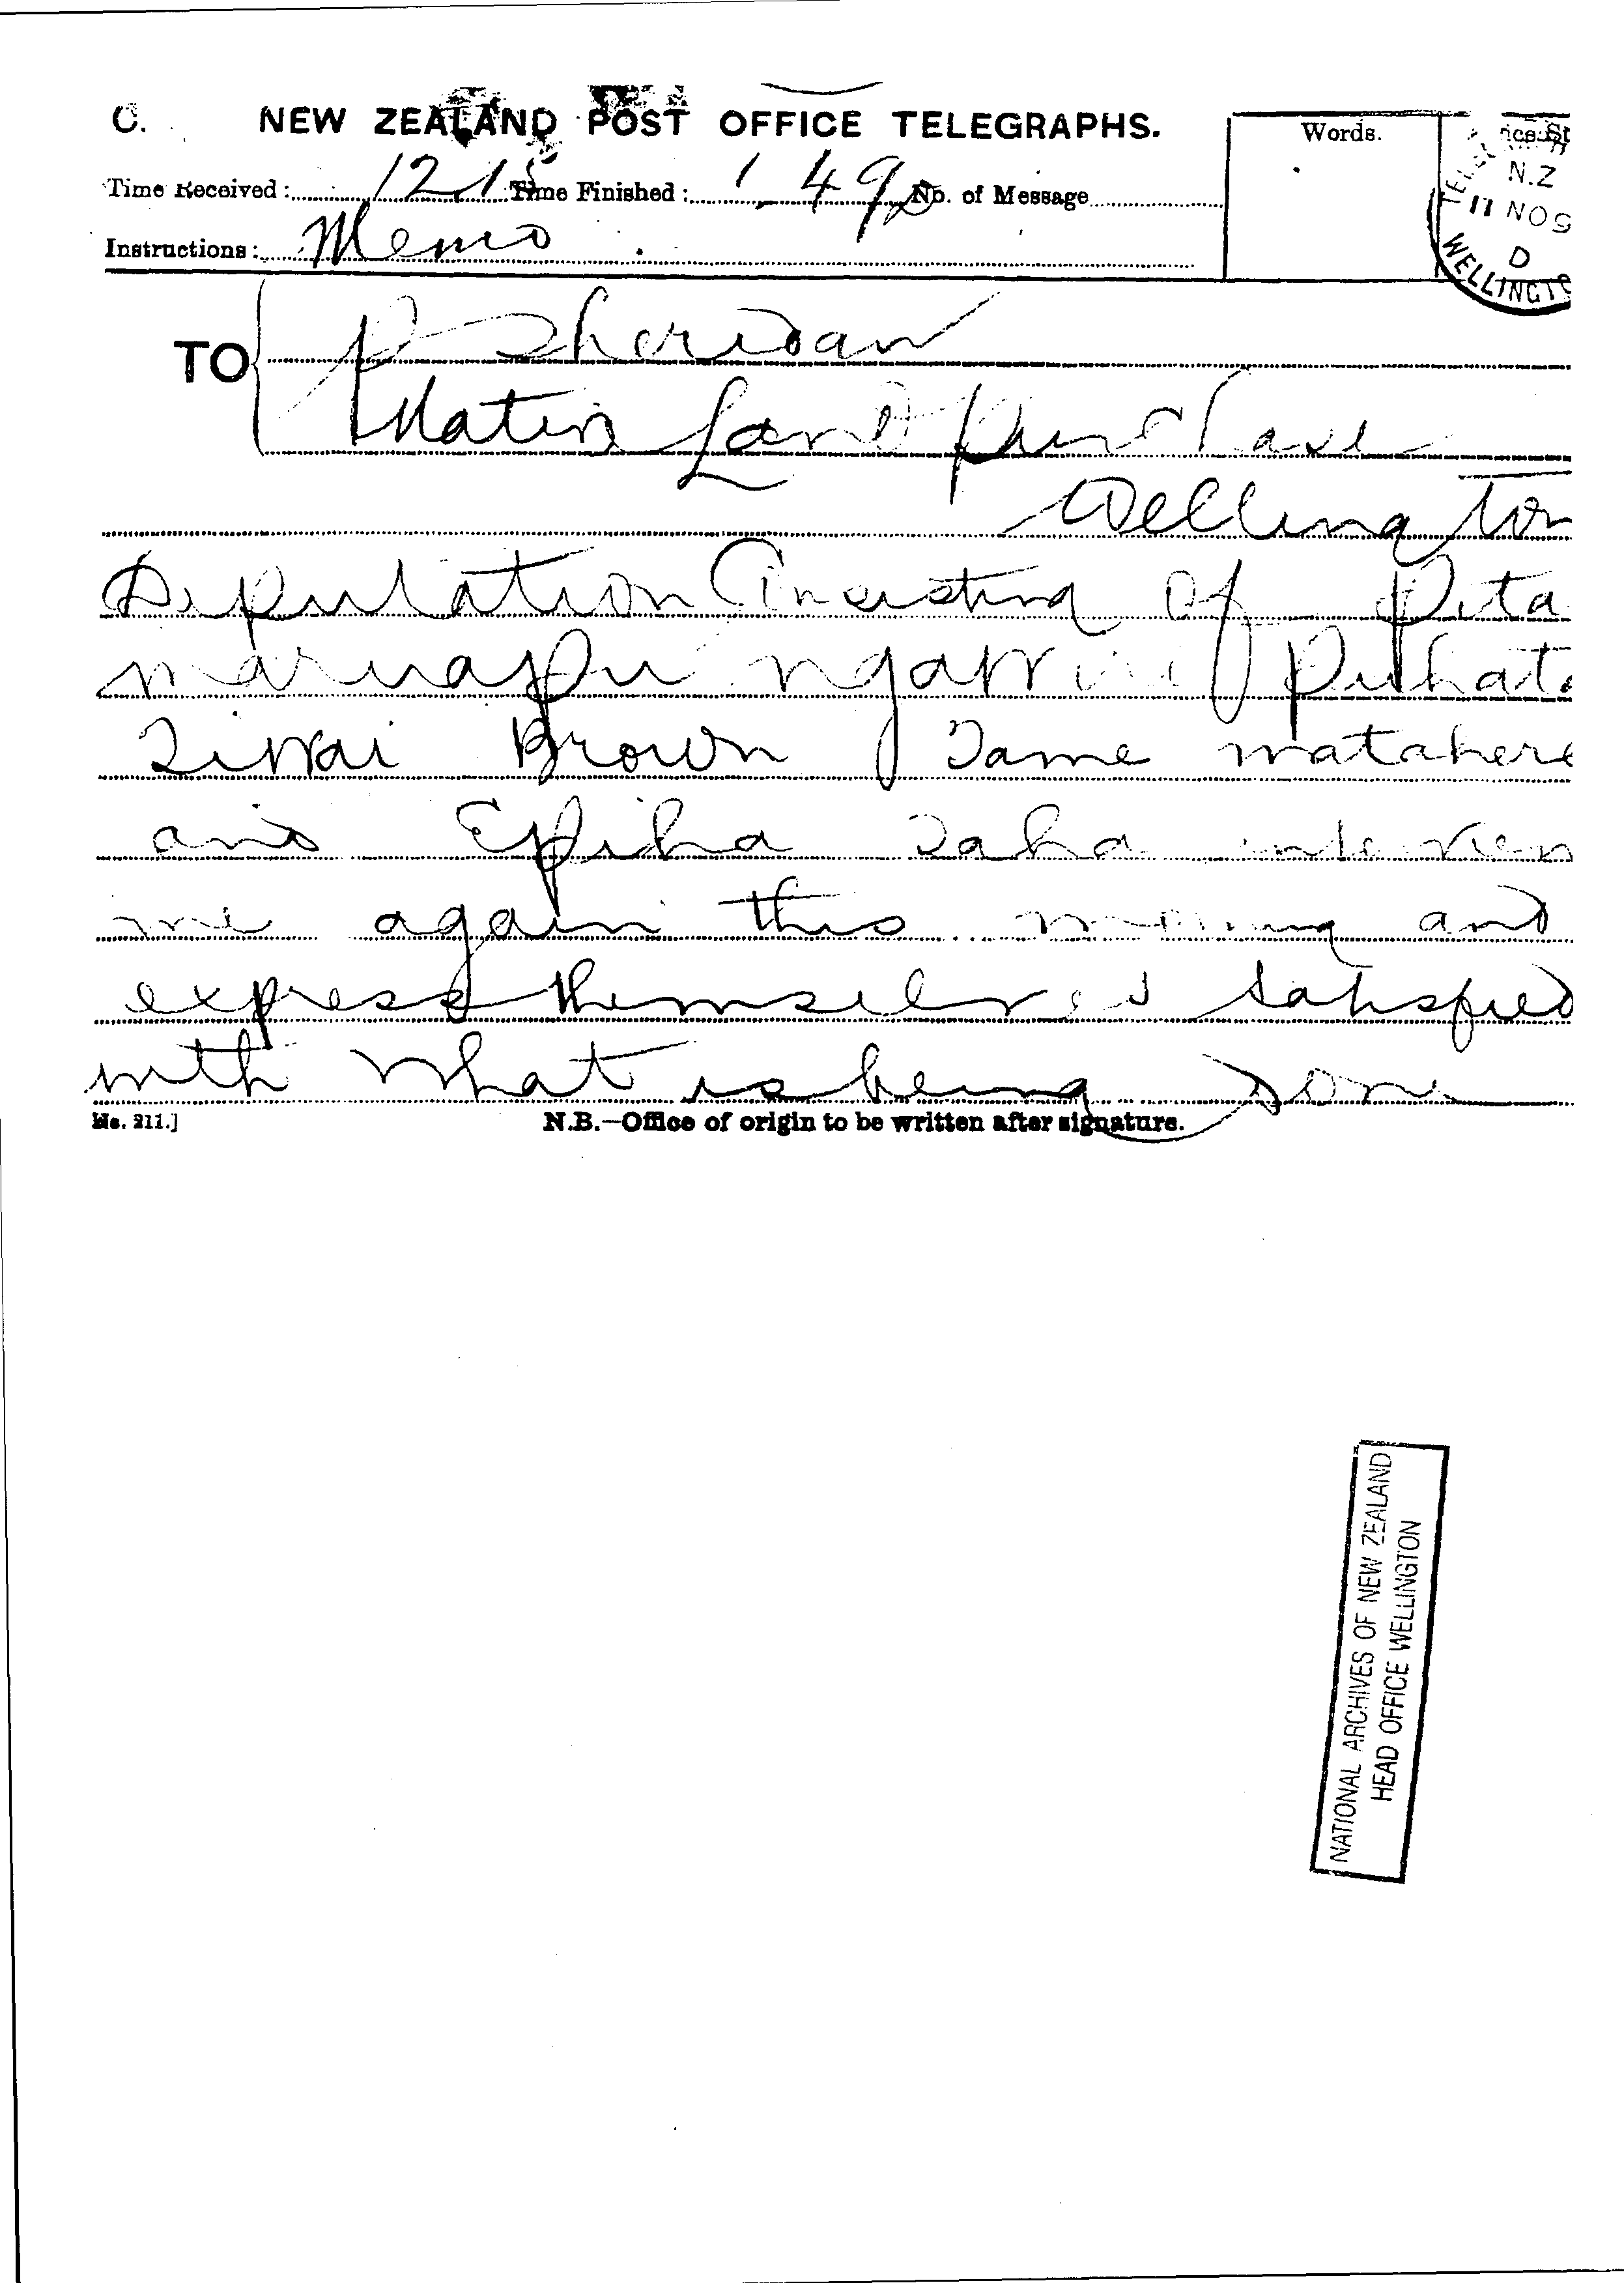 C. NEW ZEALAND POST OFFICE TELEGRAPHS.
Words.
Time Received: 12.15 Time Finished: 1.49 No. of Message
Instructions: Memo
N.Z
11 NO 9
D
WELLINGTO
TO P Sheridan
Native Land Purchase
Wellington
Deputation Consisting of Pita
maruapu Pukhata
Tiwai Brown Tame matahere
and Epiha Taha interview
me again this morning and
express themselves satisfied
with what is being done
N.B.—Office of origin to be written after signature.
NATIONAL ARCHIVES OF NEW ZEALAND
HEAD OFFICE WELLINGTON